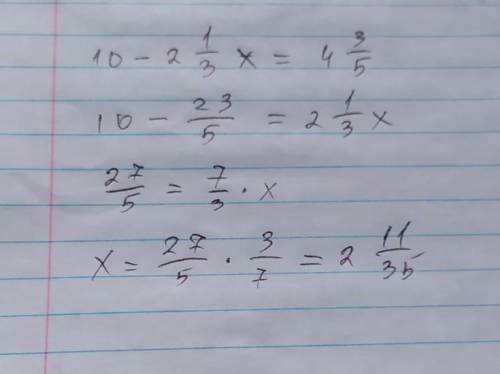 10 - 2 1/3 x = 4 3/5
10 - 23/5 = 2 1/3 x
27/5 = 7/3 · x
x = 27/5 · 3/7 = 2 11/35